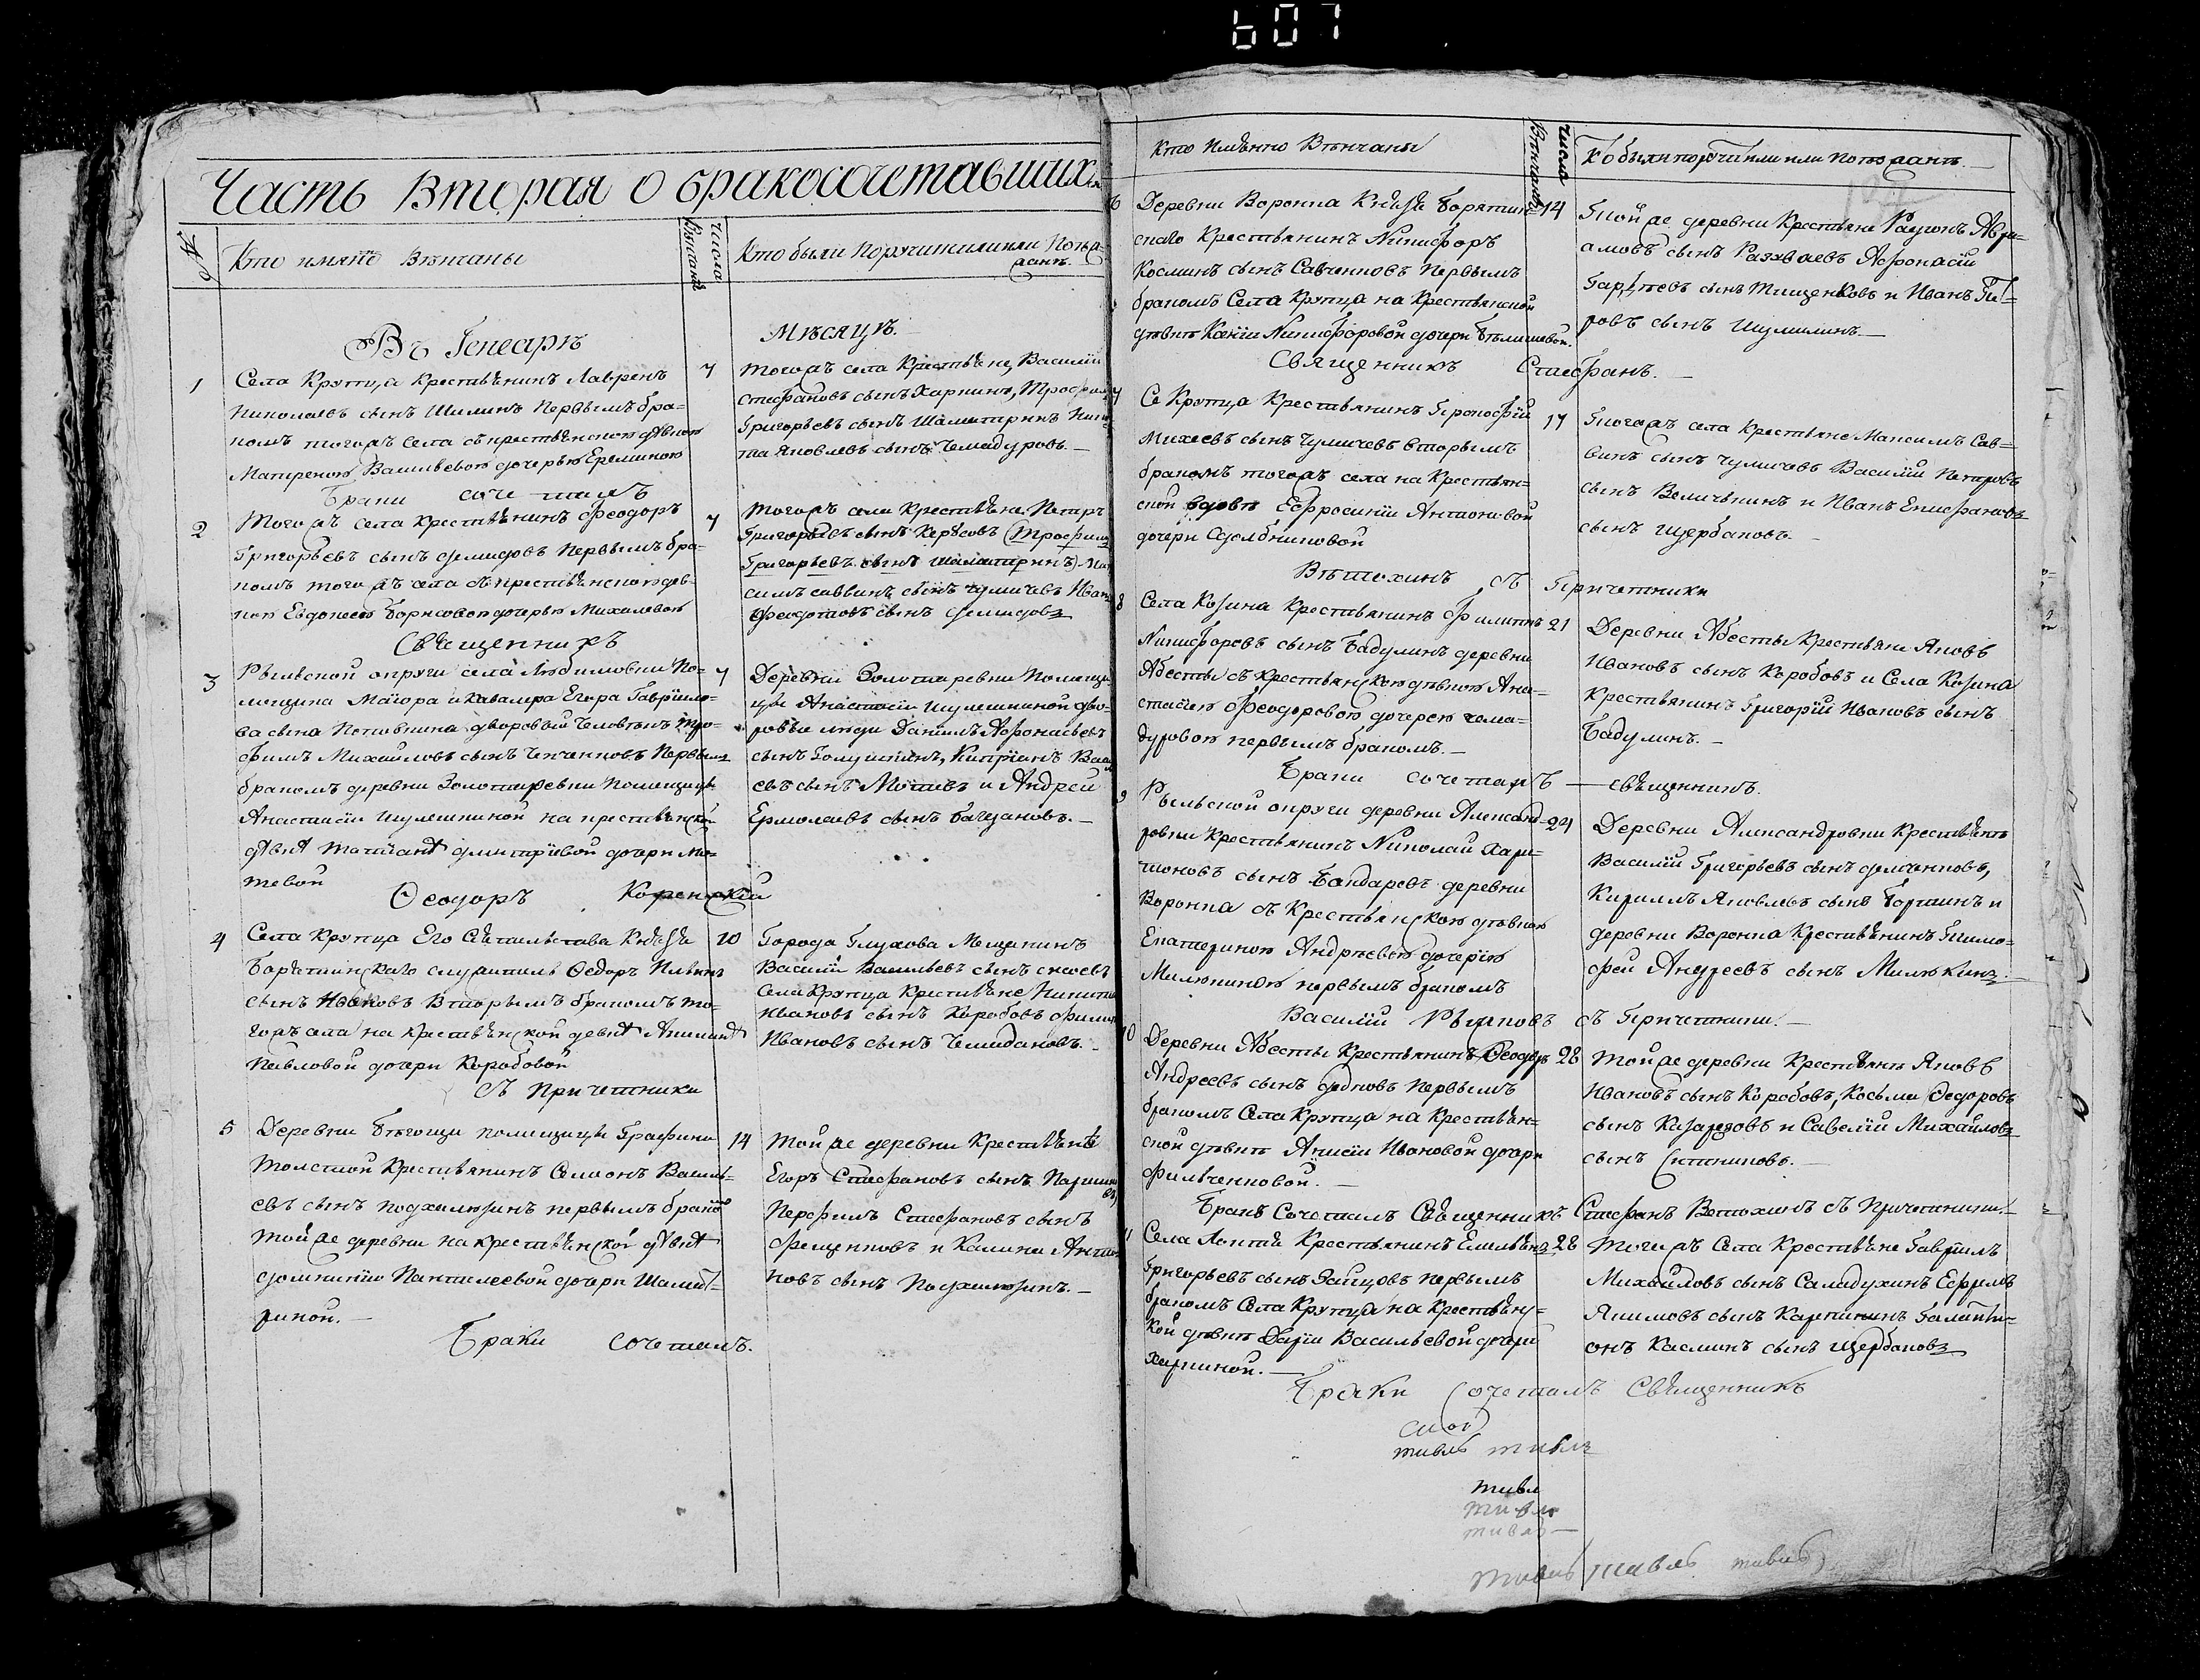 607
Часть Вторая о бракосочетавшихся
№
Кто имянно Вѣнчаны
число Вѣнчанiй
Кто были поручители или поѣзжанѣ
Въ Генварѣ
мѣсяцѣ.
1
Села Крупца крестьянинъ Лаврепъ
Николаевъ сынъ Шилинъ первымъ бра-
комъ тогожъ села съ крестьянскою дѣвкою
Матреною Васильевою дочерью Ереминою
7
тогожъ села Крестьяне, Василiй
Стефановъ сынъ Харкинъ, Трофимъ
Григорьевъ сынъ Шаматринъ Ники-
та Яковлевъ сынъ Чемадуровъ.
Браки соче талъ
2
Тогожъ села крестьянинъ Феодоръ
Григорьевъ сынъ Демидовъ первымъ бра-
комъ тогожъ села съ крестьянскою дев-
кою Евдокiею Борисовою дочерью Михаловою
7
Тогожъ села Крестьяне, Петръ
Григорьевъ сынъ (Трофимъ
Григорьевъ сынъ Шаматринъ)
симъ саввинъ сынъ чумичевъ Иванъ
Федотовъ сынъ Демидовъ
Священникъ
3
Рыльской округи села Любимовки по-
мещика Маiора и Кавалера Егора Гаврило-
ва сына дворовый человѣкъ Тро-
фимъ Михайловъ сынъ первымъ
бракомъ деревни Золотаревки помещицы
Анастасiи Шулешкиной на крестьянской
дѣвкѣ Татiанѣ Дмитрiевой дочери Мо-
тевой
7
Деревни Золотаревки помещи
цы Анастасiи Шулешкиной дво-
ровые люди Данилъ Афонасьевъ
сынъ Голушкинъ, Кипрiанъ Васи
евъ сынъ Мотевъ и Андрей
Ермолаевъ сынъ
Феодоръ Коренскiй
4
Села Крупца Его Сiятельства Князя
Борятинскаго служитель Федоръ Ильинъ
сынъ Ивановъ Вторымъ бракомъ то-
гожъ села на крестьянской девкѣ Акилинѣ
Павловой дочери Коробовой
10
Города Глухова Мещанинъ
Василiй Васильевъ сынъ
Села Крупца Крестьяне Никита
Ивановъ сынъ Коробовъ Филипъ
Ивановъ сынъ Чемодановъ.
съ причетники
5
Деревни Бѣгощи помещицы Графини
Толстой Крестьянинъ Самсонъ Василь-
евъ сынъ Подхалюзинъ первымъ бракомъ
Тойже деревни на крестьянской дѣвкѣ
Домникiи Пантелеевой дочери Шамат-
риной.
14
Тойже деревни Крестьянѣ
Егоръ Стефановъ сынъ
Перфилъ Стефановъ сынъ
Фещенковъ и Калина
новъ сынъ Подхалюзинъ.
Браки сочеталъ.
Кто имѣнно Вѣнчаны
число Вѣнчанiй
Кто были поручители или поѣзжанѣ
6
Деревни Воронка Князя Борятин-
скаго Крестьянинъ Никифоръ
Косминъ сынъ Савченковъ первымъ
бракомъ Села Крупца на Крестьянской
дѣвкѣ Ксенiи Никифоровой дочери Бѣлишевой.
14
Тойже деревни Крестьяне Радионъ Авра-
амовъ сынъ Разхваевъ Афонасiй
сынъ Тищенковъ и Иванъ
ровъ сынъ Шумилинъ.
Священникъ Стефанъ.
7
Се Крупца Крестьянинъ Прокофiй
Михеевъ сынъ Чумичевъ вторымъ
бракомъ тогожъ села на Крестьян-
ской вдовѣ Ефросинiи Антоновой
дочери
17
Тогожъ села Крестьяне Максимъ Сав-
винъ сынъ Чумичевъ Василiй Петровъ
сынъ Величкинъ и Иванъ Епифановъ
сынъ Щербаковъ.
Вѣтохинъ съ Причетники
8
Села Козина Крестьянинъ Филипъ
Никифоровъ сынъ Бадулинъ деревни
Абесты съ крестьянскою дѣвкою Ана-
стасiею Феодоровою дочерею чема-
дуровою первымъ бракомъ.
21
Деревни Абесты Крестьяни Яковъ
Ивановъ сынъ Коробовъ и Села Козина
Крестьянинъ Григорiй Ивановъ сынъ
Бадулинъ.
Браки сочеталъ священникъ.
9
Рыльской округи деревни Александ-
ровки Крестьянинъ Николай Хари-
тоновъ сынъ Бондаревъ деревни
Воронка съ Крестьянскою дѣвкою
Екатериною Андрѣевою дочерiю
Милюкиною первымъ бракомъ
24
Деревни Александровки Крестьянѣ
Василiй Григорьевъ сынъ Демченковъ,
Кирилъ Яковлевъ сынъ и
деревни Воронка Крестьянинъ Тимо-
фей Андреевъ сынъ Милюкинъ.
Василiй Рындковъ съ Причетники.
10
Деревни Абесты Крестьянинъ Феодоръ
Андреевъ сынъ Дедковъ первымъ
бракомъ Села Крупца на Крестьян-
ской дѣвкѣ Анисiи Ивановой дочери
Фильченковой.
28
Тойже деревни Крестьянѣ Яковъ
Ивановъ сынъ Коробовъ, Косьма Федоровъ
сынъ и Савелiй Михайловъ
сынъ Ситниковъ.
Бракъ Сочеталъ Священникъ Стефанъ Ветохинъ съ Причетники.
11
Села Локтя Крестьянинъ Емельянъ
Григорьевъ сынъ Зайцовъ первымъ
бракомъ Села Крупца на Крестьянс-
кой дѣвкѣ Дарiи Васильевой дочери
Харкиной.
28
Тогожъ Села Крестьяне Гаврилъ
Михайловъ сынъ Саладухинъ Ефремъ
Якимовъ сынъ Галакти-
онъ Касминъ сынъ Щербаковъ
Браки Сочеталъ Священникъ